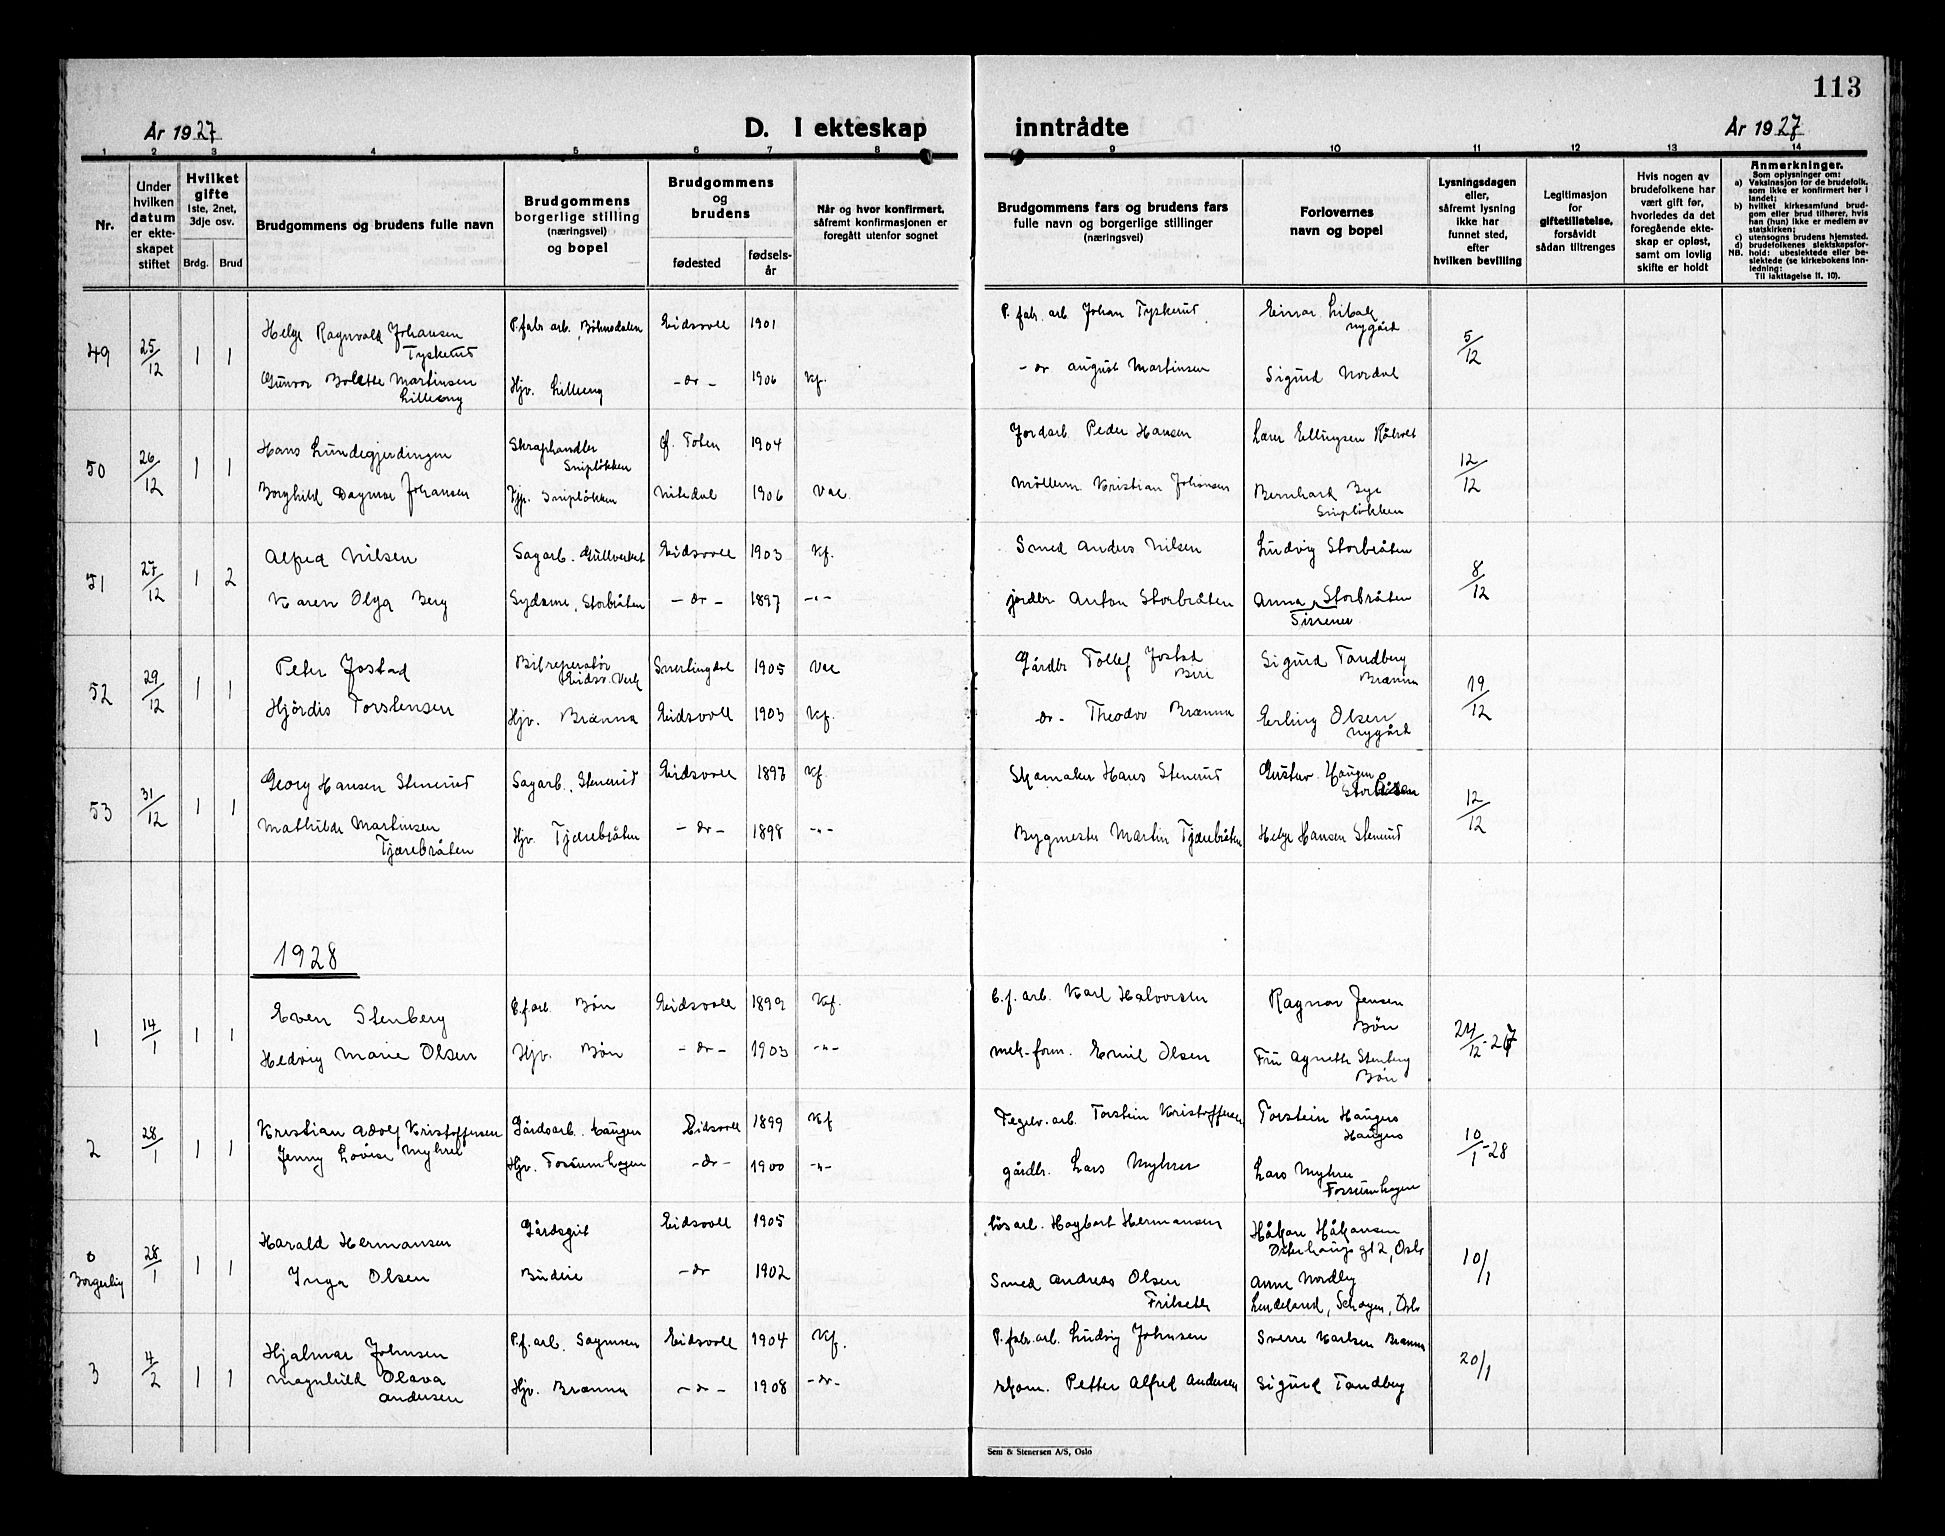 113
År 1927
D. I ekteskap inntrådte
År 1927
1 2 3 4 5 6 7 8 9 10 11 12 13 14
Nr.
Under hvilken datum er ekteskapet stiftet
Hvilket gifte
1ste, 2net, 3dje osv.
Brdg. Brud
Brudgommens og brudens fulle navn
Brudgommens borgerlige stilling (næringsvei) og bopel
Brudgommens og brudens
fødested
fødselsår
Når og hvor konfirmert, såfremt konfirmasjonen er foregått utenfor sognet
Brudgommens fars og brudens fars fulle navn og borgerlige stillinger (næringsvei)
Forlovernes navn og bopel
Lysningsdagen eller, såfremt lysning ikke har funnet sted, efter hvilken bevilling
Legitimasjon for giftetillatelse, forsåvidt sådan tiltrenges
Hvis nogen av brudefolkene har vært gift før, hvorledes da det foregående ekteskap er opløst, samt om lovlig skifte er holdt
Anmerkninger.
Som oplysninger om:
a) Vaksinasjon for de brudefolk, som ikke er konfirmert her i landet;
b) hvilket kirkesamfund brudgom eller brud tilhører, hvis han (hun) ikke er medlem av statskirken;
c) utensogns brudens hjemsted.
d) brudefolkenes slektskapsforhold: ubeslektede eller beslektede (se kirkebokens innledning;
NB. Til iakttagelse lf. 10).
49 25/12 1 1 Helge Ragnvald Johansen Tyskerud P.fabr arb. Böhnsdalen Eidsvoll 1901 P. fabr. arb Johan Tyskerud Einar Libak Nygård 5/12
Gunvor Bolette Martinsen Lilleeng Hjv. Lilleeng - do - 1906 Kf. - do August Martinsen Sigurd Nordal
50 26/12 1 1 Hans Lundegjerdingen Skraphandler Snipløkken Ø. Toten 1904 Jordarb. Peder Hansen Lars Ellingsen Råholt 12/12
Borghild Dagmar Johansen Hjp. Snipløkken Nitedal 1906 Vac. Möllerm. Kristian Johansen Bernhard Bye Snipløkken
51 27/12 1 2 Alfred Nilsen Sagarb. Gullverket Eidsvoll 1903 Kf. Smed Anders Nilsen Ludvig Storbråten 8/12
Karen Olga Berg Sydame, Storbråten - do - 1897 -"- jordbr Anton Storbråten Anna Storbråten
52 29/12 1 1 Peter Jostad Bilreperatør Eidsv. Verk Snertingdal 1905 Vac Gårdbr Tollef Jostad Biri Sigurd Tandberg Brænna 19/12
Hjördis Torstensen Hjv. Brænna Eidsvoll 1903 Kf. do - Theodor Brænna Erling Olsen Nygård
53 31/12 1 1 Georg Hansen Stenerud Sagarb., Stenerud Eidsvoll 1897 Kf. Skomaker Hans Stenerud Gustav Haugen 12/12
Mathilde Martinsen Tjærebråten Hjv. Tjærebråten - do - 1898 -"- Bygmester Martin Tjærebråten Helge Hansen Stenerud
1928
1 14/1 1 1 Even Stenberg C.f.arb Bön Eidsvoll 1899 Kf. C.f. arb. Karl Halvorsen Ragnar Jensen Bön 24/12-27
Hedvig Marie Olsen Hjv. Bön - do - 1903 -"- mek-form. Emil Olsen Fru Agneth Stenberg Bön
2 28/1 1 1 Kristian Adolf Kristoffersen Gårdsarb. Haugen Eidsvoll 1899 Kf Teglv. arb. Torstein Kristoffersen Torstein Haugen Haugen 10/1-28
Jenny Lovise Myhrer Hjv. Fossumhagen - do - 1900 -"- gårdbr. Lars Myhrer Lars Myhrer Fossumhagen
0 Borgerlig 28/1 1 1 Harald Hermansen Gårdsgut Eidsvoll 1905 lösarb. Hagbart Hermansen Håkon Håkansen Osterhausgt 2, Oslo 10/1
Inga Olsen Budeie - do 1902 Smed Andreas Olsen Frilseth Anne Nordby
3 4/2 1 1 Hjalmar Johnsen P.f. arb. Sagmoen Eidsvoll 1904 Kf. P. fabr. arb. Ludvig Johnsen Sverre Karlsen Brænna 20/1
Magnhild Olava Andersen Hjv. Brænna - do - 1908 - do - skom. Petter Alfred Andersen Sigurd Tandberg
Sem & Stenersen A/S, Oslo